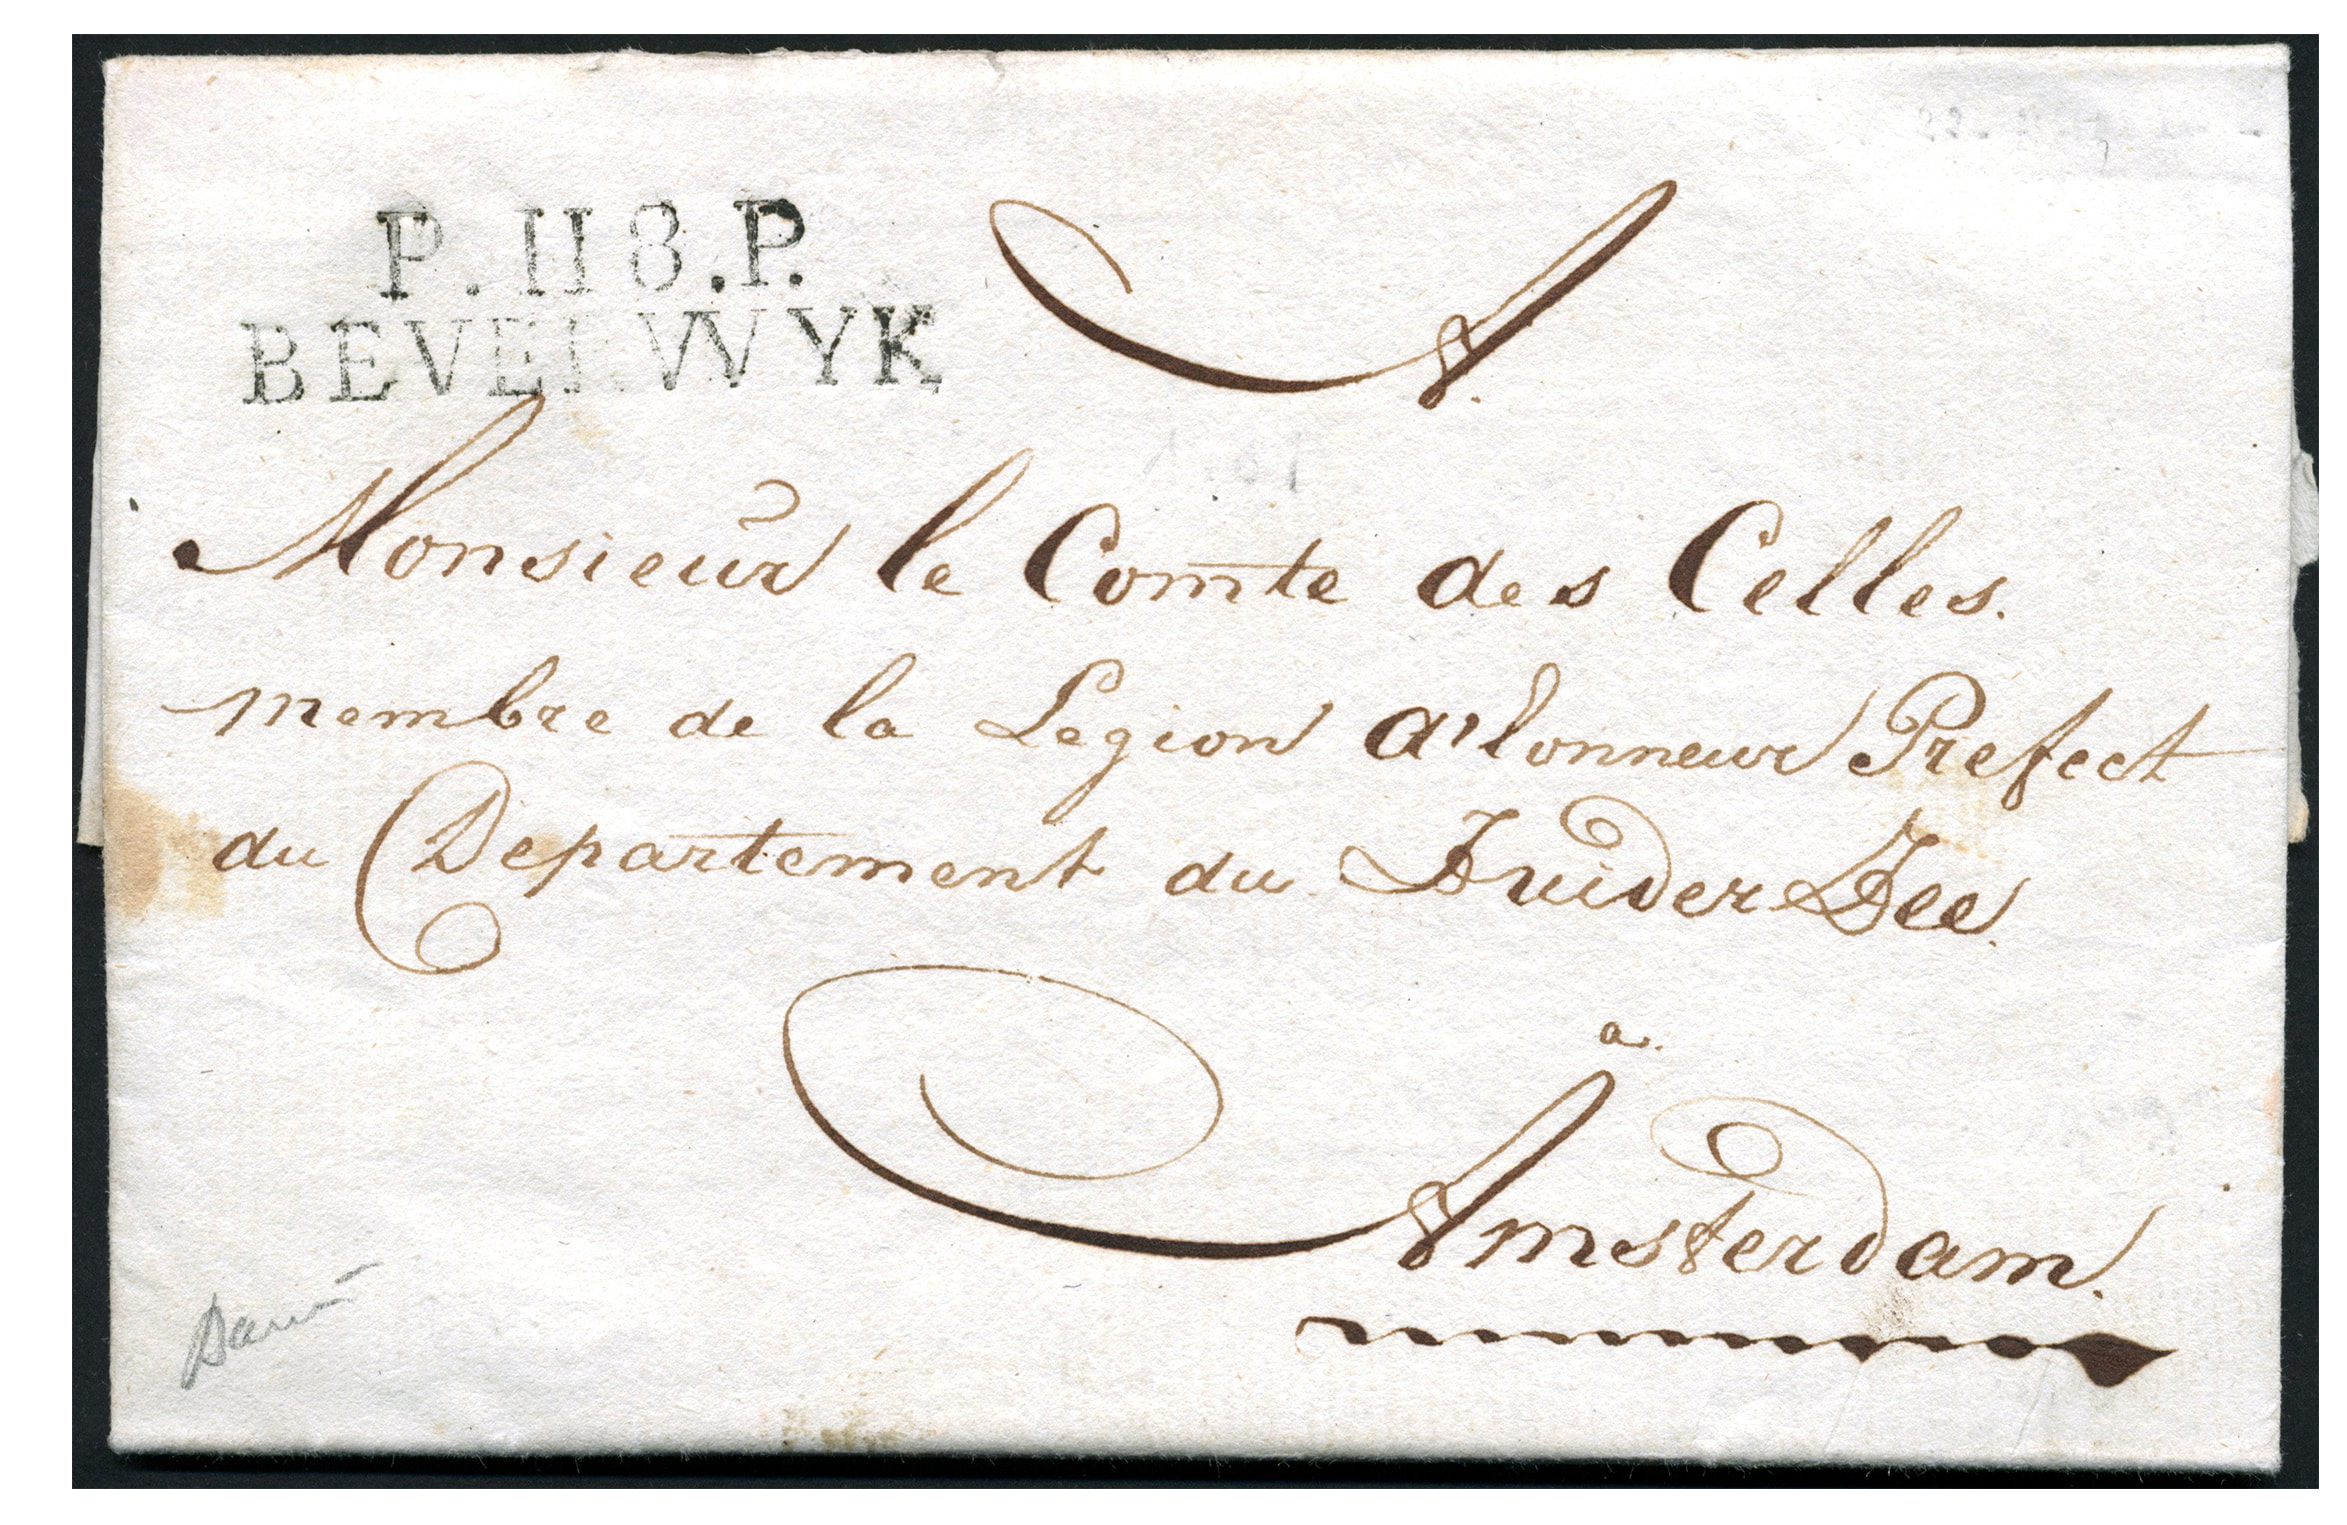 P.118.P.
BEVERWYK
A.
Monsieur le Comte des Celles.
membre de la Legion d'lonneur Prefect
du Departement du Zuider Zee.
a.
Amsterdam.